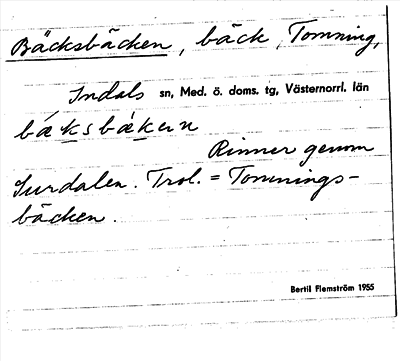 Bäcksbäcken, bäck, Tomming,
Indals sn, Med. ö. doms. tg, Västernorrl. län
bǽksbækeṛn
Rinner genom
Surdalen. Trol. = Tommings-
bäcken.
Bertil Flemström 1955